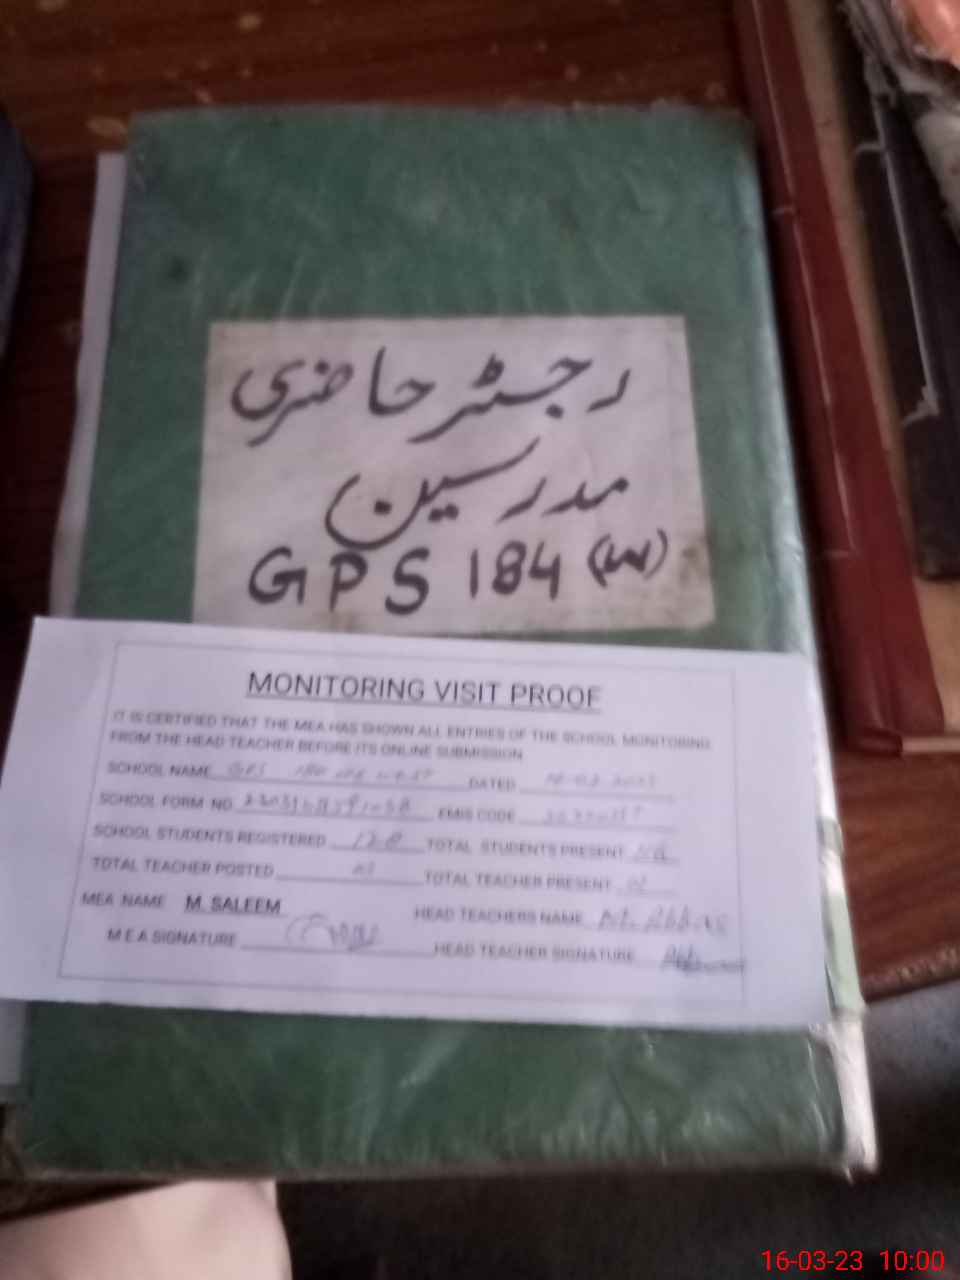 رجسٹر حاضری
مدرسین
GPS 184 (W)
MONITORING VISIT PROOF
IT IS CERTIFIED THAT THE MEA HAS SHOWN ALL ENTRIES OF THE SCHOOL MONITORING
FROM THE HEAD TEACHER BEFORE ITS ONLINE SUBMISSION
SCHOOL NAME GPS WEST DATED
SCHOOL FORM NO EMIS CODE
SCHOOL STUDENTS REGISTERED 128 TOTAL STUDENTS PRESENT
TOTAL TEACHER POSTED TOTAL TEACHER PRESENT
MEA NAME M. SALEEM HEAD TEACHERS NAME M. Abbas
M.E.A SIGNATURE HEAD TEACHER SIGNATURE
16-03-23 10:00